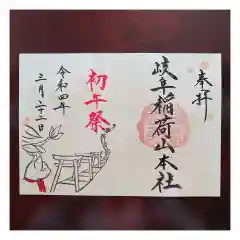 奉拝
岐阜稲荷山本社
初午祭
令和四年
三月二十二日